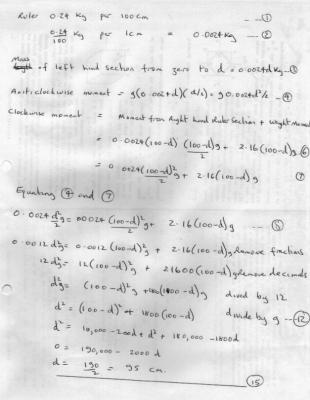 Ruler 0.24 Kg per 100 cm --- ①
0.24/100 Kg per 1cm = 0.0024 Kg --- ②
Mass of left hand section from zero to d = 0.0024d Kg - ③
Anticlockwise moment = g(0.002+d)(d/2) = g 0.0024d²/2 - ④
Clockwise moment = Moment from Right hand Ruler Section + Weight Moment
= 0.0024(100-d)(100-d)g/2 + 2.16(100-d)g ⑥
= 0.0024(100-d)²g/2 + 2.16(100-d)g ⑦
Equating ④ and ⑦
0.0024d²g/2 = 0.0024(100-d)²g/2 + 2.16(100-d)g --- ⑧
0.0012d²g = 0.0012(100-d)²g + 2.16(100-d)g Remove fractions
12d²g = 12(100-d)²g + 21600(100-d)g Remove decimals
d²g = (100-d)²g + 1800(100-d)g divied by 12
d² = (100-d)² + 1800(100-d) divide by g --- ⑫
d² = 10,000 - 200d + d² + 180,000 - 1800d
0 = 190,000 - 2000d
d = 190/2 = 95 cm.
⑮